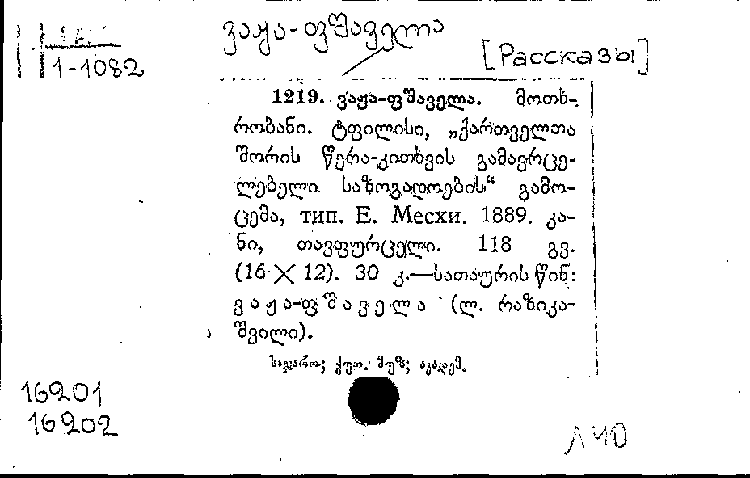 ვაჟა-ფშაველა
1-1082
[Рассказы]
1219. ვაჟა-ფშაველა. მოთხ-
რობანი. ტფილისი, „ქართველთა
შორის წერა-კითხვის გამავრცე-
ლებელი საზოგადოების“ გამო-
ცემა, тип. Е. Месхи. 1889. კა-
ნი, თავფურცელი. 118 გვ.
(16 × 12). 30 კ.—სათაურის წინ:
ვაჟა-ფშაველა (ლ. რაზიკა-
შვილი).
საჯარო; ქუთ. მუზ; აკადემ.
16201
16202